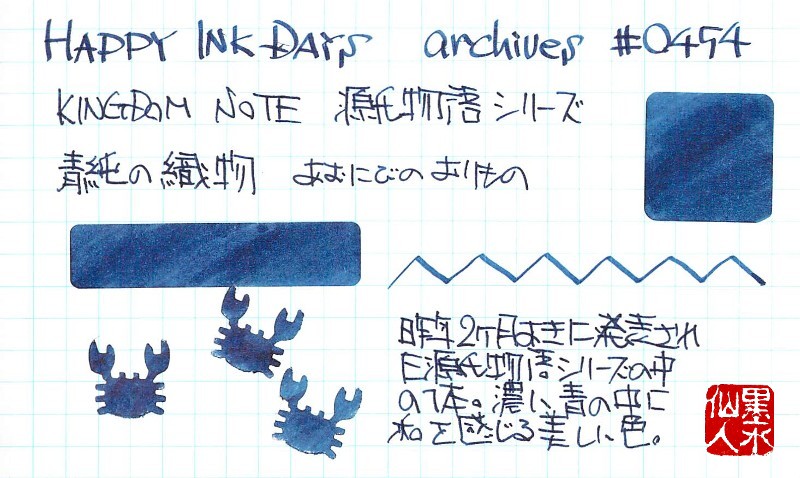 HAPPY INK DAYS archives #0454
KINGDOM NOTE 源氏物語シリーズ
青純の織物 あおにびのおりもの
昨年2ヶ月おきに発売され
た源氏物語シリーズの中
の1本。濃い青の中に
和を感じる美しい色。
墨水
仙人